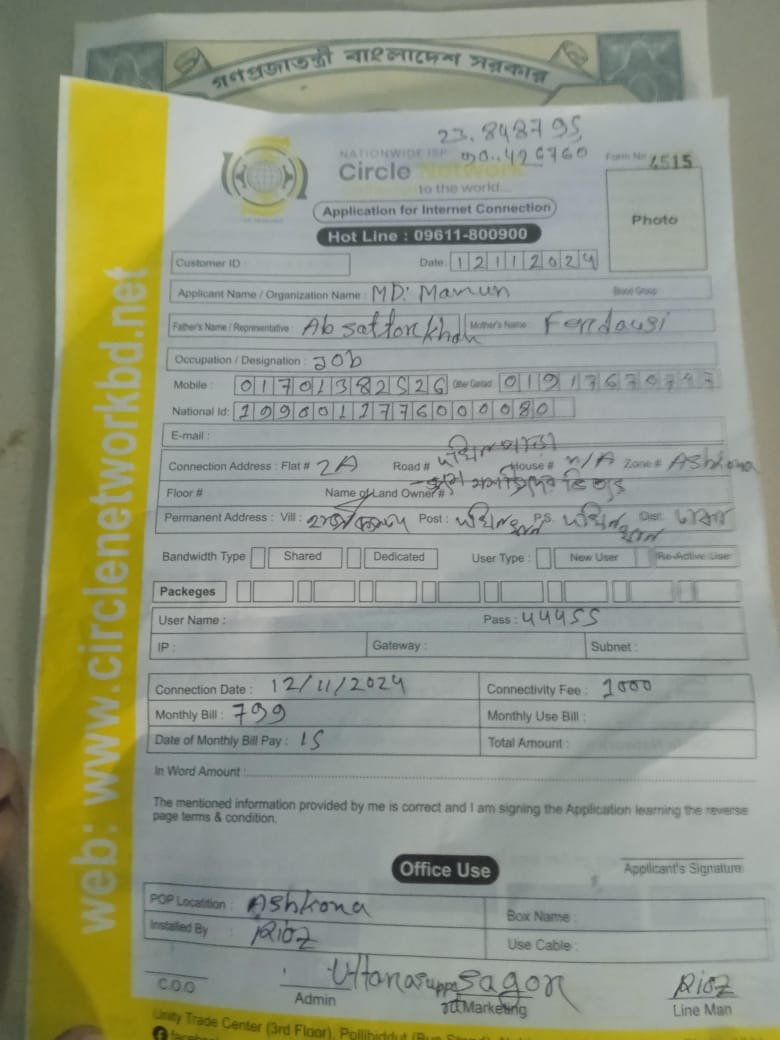 গণপ্রজাতন্ত্রী বাংলাদেশ সরকার
23.848795
90.426760
NATIONWIDE ISP
Circle Network
to the world...
Form No 4515
Application for Internet Connection
Photo
Hot Line : 09611-800900
Customer ID
Date: 12112024
Applicant Name / Organization Name : MD: Mamun
Blood Group
Father's Name / Representative : Ab sattor khan Mother's Name : Ferdousi
Occupation / Designation : Job
Mobile : 01701382526 Other Contact
National Id: 19900127760000080
E-mail :
Connection Address : Flat # 2A Road # House # N/A Zone # Ashkona
Floor # Name of Land Owner #
Permanent Address : Vill : Post : P.S. Dist:
Bandwidth Type Shared Dedicated User Type : New User Re-Active User
Packeges
User Name : Pass : 44455
IP : Gateway : Subnet :
Connection Date : 12/11/2024 Connectivity Fee : 1000
Monthly Bill : 799 Monthly Use Bill :
Date of Monthly Bill Pay : 15 Total Amount :
In Word Amount :
The mentioned information provided by me is correct and I am signing the Application learning the reverse
page terms & condition.
Office Use
Applicant's Signature
POP Locatition : Ashkona Box Name :
Installed By : Rioz Use Cable :
C.O.O Admin Sagor Marketing Rioz Line Man
Unity Trade Center (3rd Floor), Pollibiddut
web: www.circlenetworkbd.net